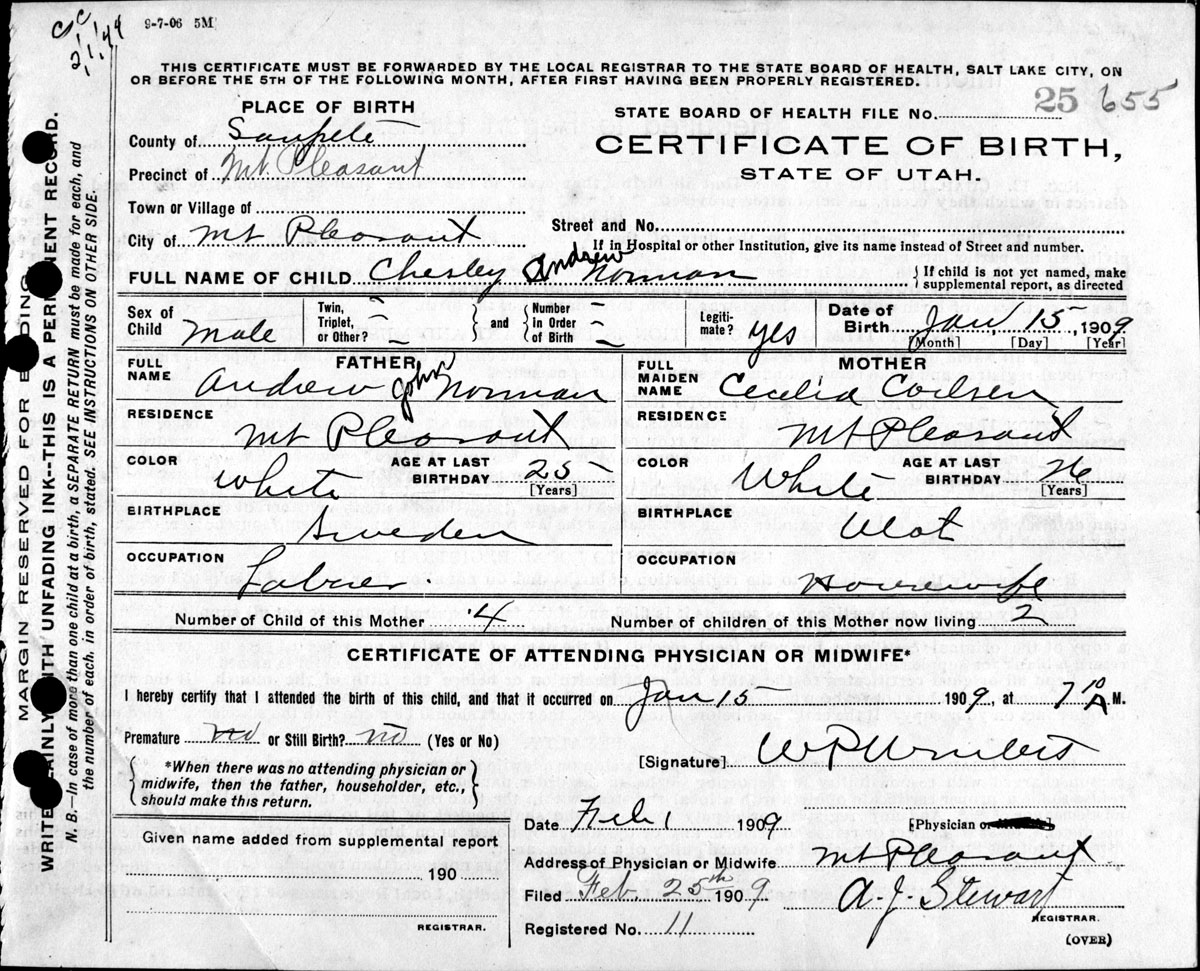 9-7-06 5M
THIS CERTIFICATE MUST BE FORWARDED BY THE LOCAL REGISTRAR TO THE STATE BOARD OF HEALTH, SALT LAKE CITY, ON
OR BEFORE THE 5TH OF THE FOLLOWING MONTH, AFTER FIRST HAVING BEEN PROPERLY REGISTERED.
PLACE OF BIRTH
County of Sanpete
Precinct of Mt. Pleasant
Town or Village of
City of Mt Pleasant
25 655
STATE BOARD OF HEALTH FILE No.
CERTIFICATE OF BIRTH,
STATE OF UTAH.
Street and No.
If in Hospital or other Institution, give its name instead of Street and number.
FULL NAME OF CHILD Chesley Andrew Norman
{ If child is not yet named, make
supplemental report, as directed
Sex of Child Male
Twin, Triplet, or Other? – and Number In Order of Birth –
Legiti-mate? yes
Date of Birth Jan, 15, 1909
[Month] [Day] [Year]
FATHER
FULL NAME Andrew John Norman
RESIDENCE Mt Pleasant
COLOR White AGE AT LAST BIRTHDAY 25
[Years]
BIRTHPLACE Sweden
OCCUPATION Laborer
MOTHER
FULL MAIDEN NAME Cecelia
RESIDENCE Mt Pleasant
COLOR White AGE AT LAST BIRTHDAY 26
[Years]
BIRTHPLACE Utah
OCCUPATION Housewife
Number of Child of this Mother 4 Number of children of this Mother now living 2
CERTIFICATE OF ATTENDING PHYSICIAN OR MIDWIFE*
I hereby certify that I attended the birth of this child, and that it occurred on Jan 15 1909, at 7 10 A M.
Premature no or Still Birth? no (Yes or No)
*When there was no attending physician or
midwife, then the father, householder, etc.,
should make this return.
[Signature] W P
Given name added from supplemental report
190
REGISTRAR.
Date Feb 1 1909 [Physician or
Address of Physician or Midwife Mt Pleasant
Filed Feb. 25th 1909 A. J. Stewart
REGISTRAR.
Registered No. 11
(OVER)
MARGIN RESERVED FOR BINDING
WRITE PLAINLY WITH UNFADING INK--THIS IS A PERMANENT RECORD.
N. B.—In case of more than one child at a birth, a SEPARATE RETURN must be made for each, and
the number of each, in order of birth, stated. SEE INSTRUCTIONS ON OTHER SIDE.